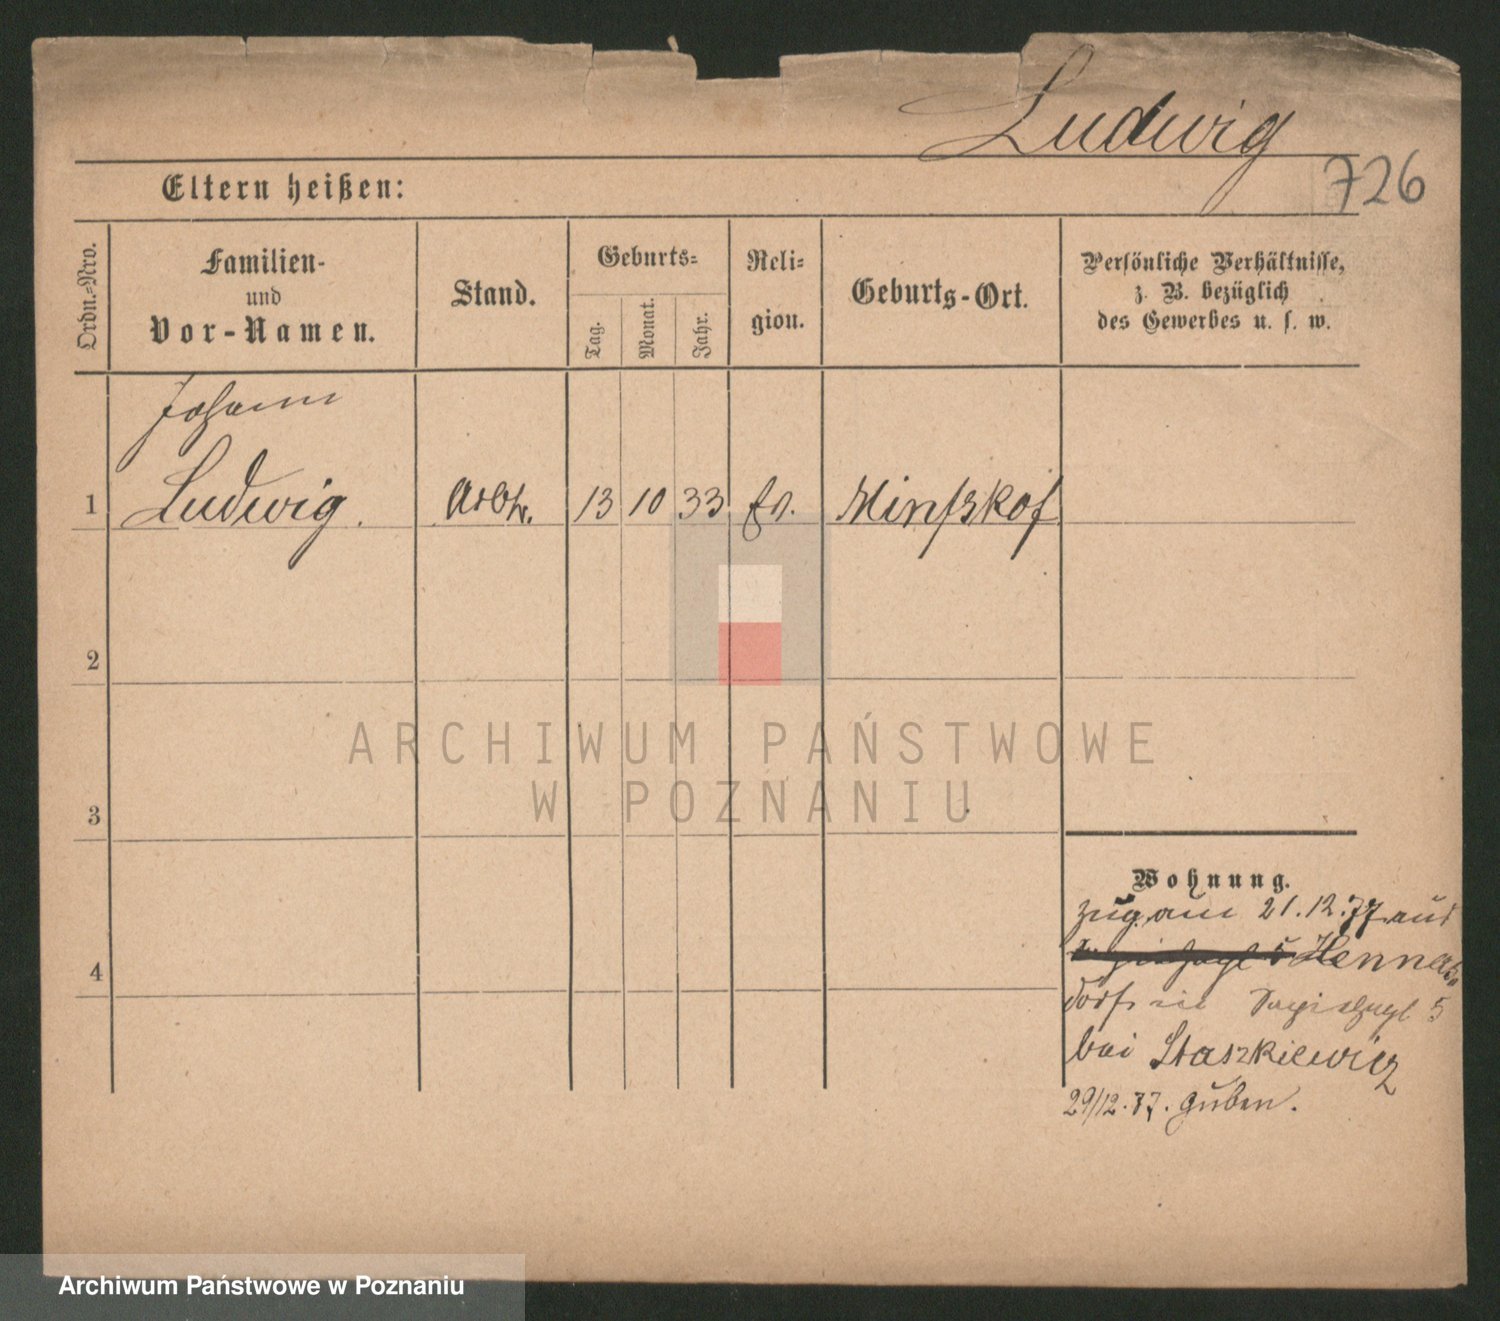 Ludwig
726
Eltern heißen:
Ordn.-Nro.
Familien-
und
Vor-Namen.
Stand.
Geburts-
Tag.
Monat.
Jahr.
Reli-
gion.
Geburts-Ort.
Persönliche Verhältnisse,
z. B. bezüglich
des Gewerbes u. s. w.
Johann
1 Ludwig. Arbtr. 13 10 33 Ev.
2
3
4
ARCHIWUM PAŃSTWOWE
W POZNANIU
Wohnung.
zug. am 21.12.77 aus
5 Henners
dorf in 5
bei Staszkiewicz
29/12.77. Guben.
Archiwum Państwowe w Poznaniu